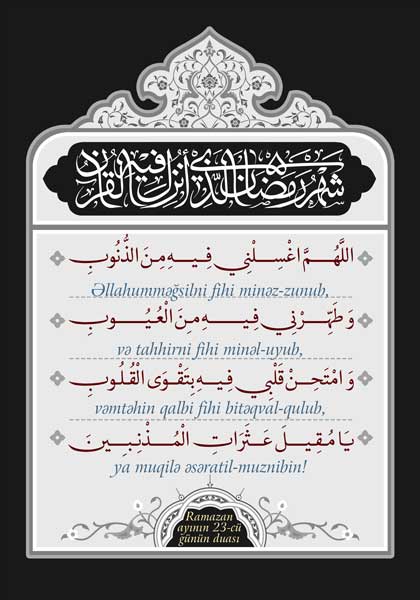 شَهْرُ رَمَضَانَ الَّذِي أُنْزِلَ فِيهِ الْقُرْآنُ
اَللّٰهُمَّ اغْسِلْنِي فِيهِ مِنَ الذُّنُوبِ
Əllahumməğsilni fihi minəz-zunub,
وَ طَهِّرْنِي فِيهِ مِنَ الْعُيُوبِ
və tahhirni fihi minəl-uyub,
وَ امْتَحِنْ قَلْبِي فِيهِ بِتَقْوَى الْقُلُوبِ
vəmtəhin qalbi fihi bitəqval-qulub,
يَا مُقِيلَ عَثَرَاتِ الْمُذْنِبِينَ
ya muqilə əsəratil-muznibin!
Ramazan
ayının 23-cü
günün duası